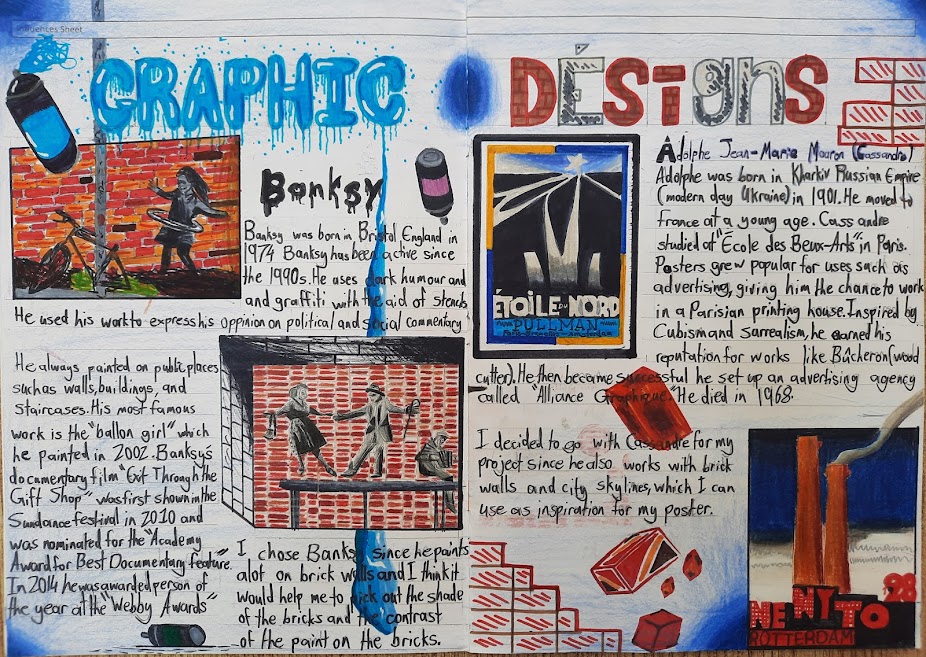 Influences Sheet
GRAPHIC
DÉSIGNS
Banksy
Banksy was born in Bristol England in
1974 Banksy has been active since
the 1990s. He uses dark humour and
and graffiti with the aid of stencls
He used his work to express his oppinion on political and social commentary
He always painted on public places
such as walls, buildings, and
staircases. His most famous
work is the "ballon girl" which
he painted in 2002. Banksy's
documentary film "Exit Through the
Gift Shop" was first shown in the
Sundance festival in 2010 and
was nominated for the "Academy
Award for Best Documentary feature."
In 2014 he was awarded person of
the year at the "Webby Awards"
I chose Banksy since he paints
alot on brick walls and I think it
would help me to pick out the shade
of the bricks and the contrast
of the paint on the bricks.
ÉTOILE DU NORD
PULLMAN
Adolphe Jean-Marie Mouron (Cassandre)
Adolphe was born in Kharkiv Russian Empire
(modern day Ukraine) in 1901. He moved to
france at a young age. Cassandre
studied at "École des Beux-Arts" in Paris.
Posters grew popular for uses such as
advertising, giving him the chance to work
in a Parisian printing house. Inspired by
Cubism and surrealism, he earned his
reputation for works like Bûcheron (wood
cutter). He then became successful he set up an advertising agency
called "Alliance Graphique". He died in 1968.
I decided to go with Cassandre for my
project since he also works with brick
walls and city skylines, which I can
use as inspiration for my poster.
NENYTO
28
ROTTERDAM